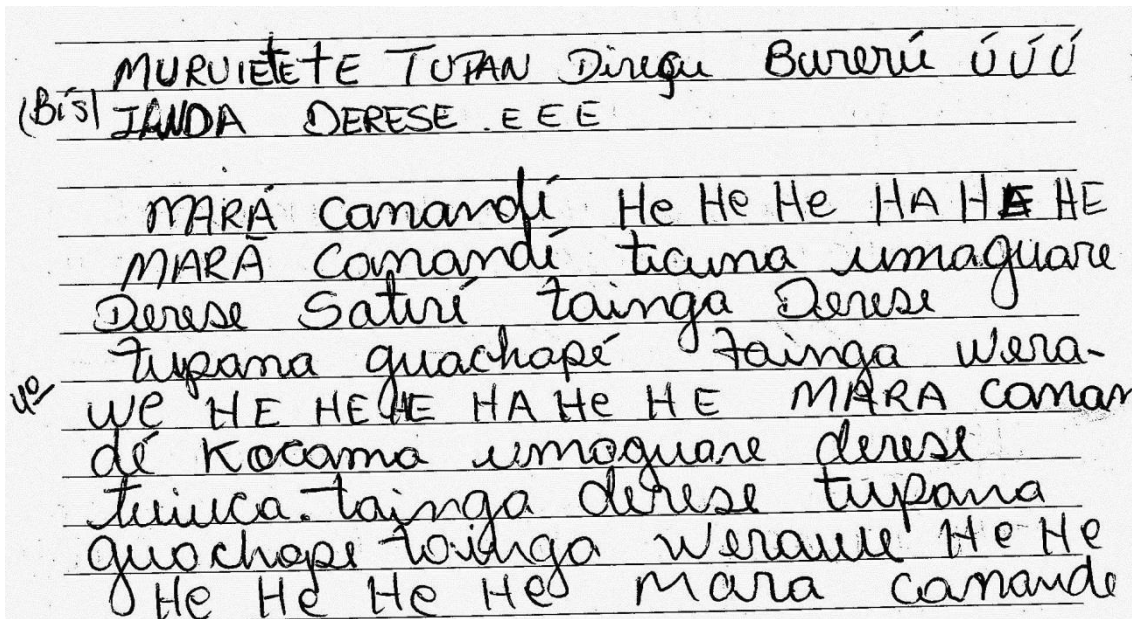 MURUIETETE TUPAN Diregu Bureru ÚÚÚ
(Bis) JANDA DERESE . E E E
MARÁ Camandí He He He HA HE HE
MARÃ Camandé ticuna umaguare
Derese Saturí tainga Derese
tupana guachapé tainga wera-
4º we HE HE HE HA He HE MARA caman
dé Kocama umaguare derese
tuiuca. tainga derese tupana
guachape tainga werawe He He
He He He He Mara camande